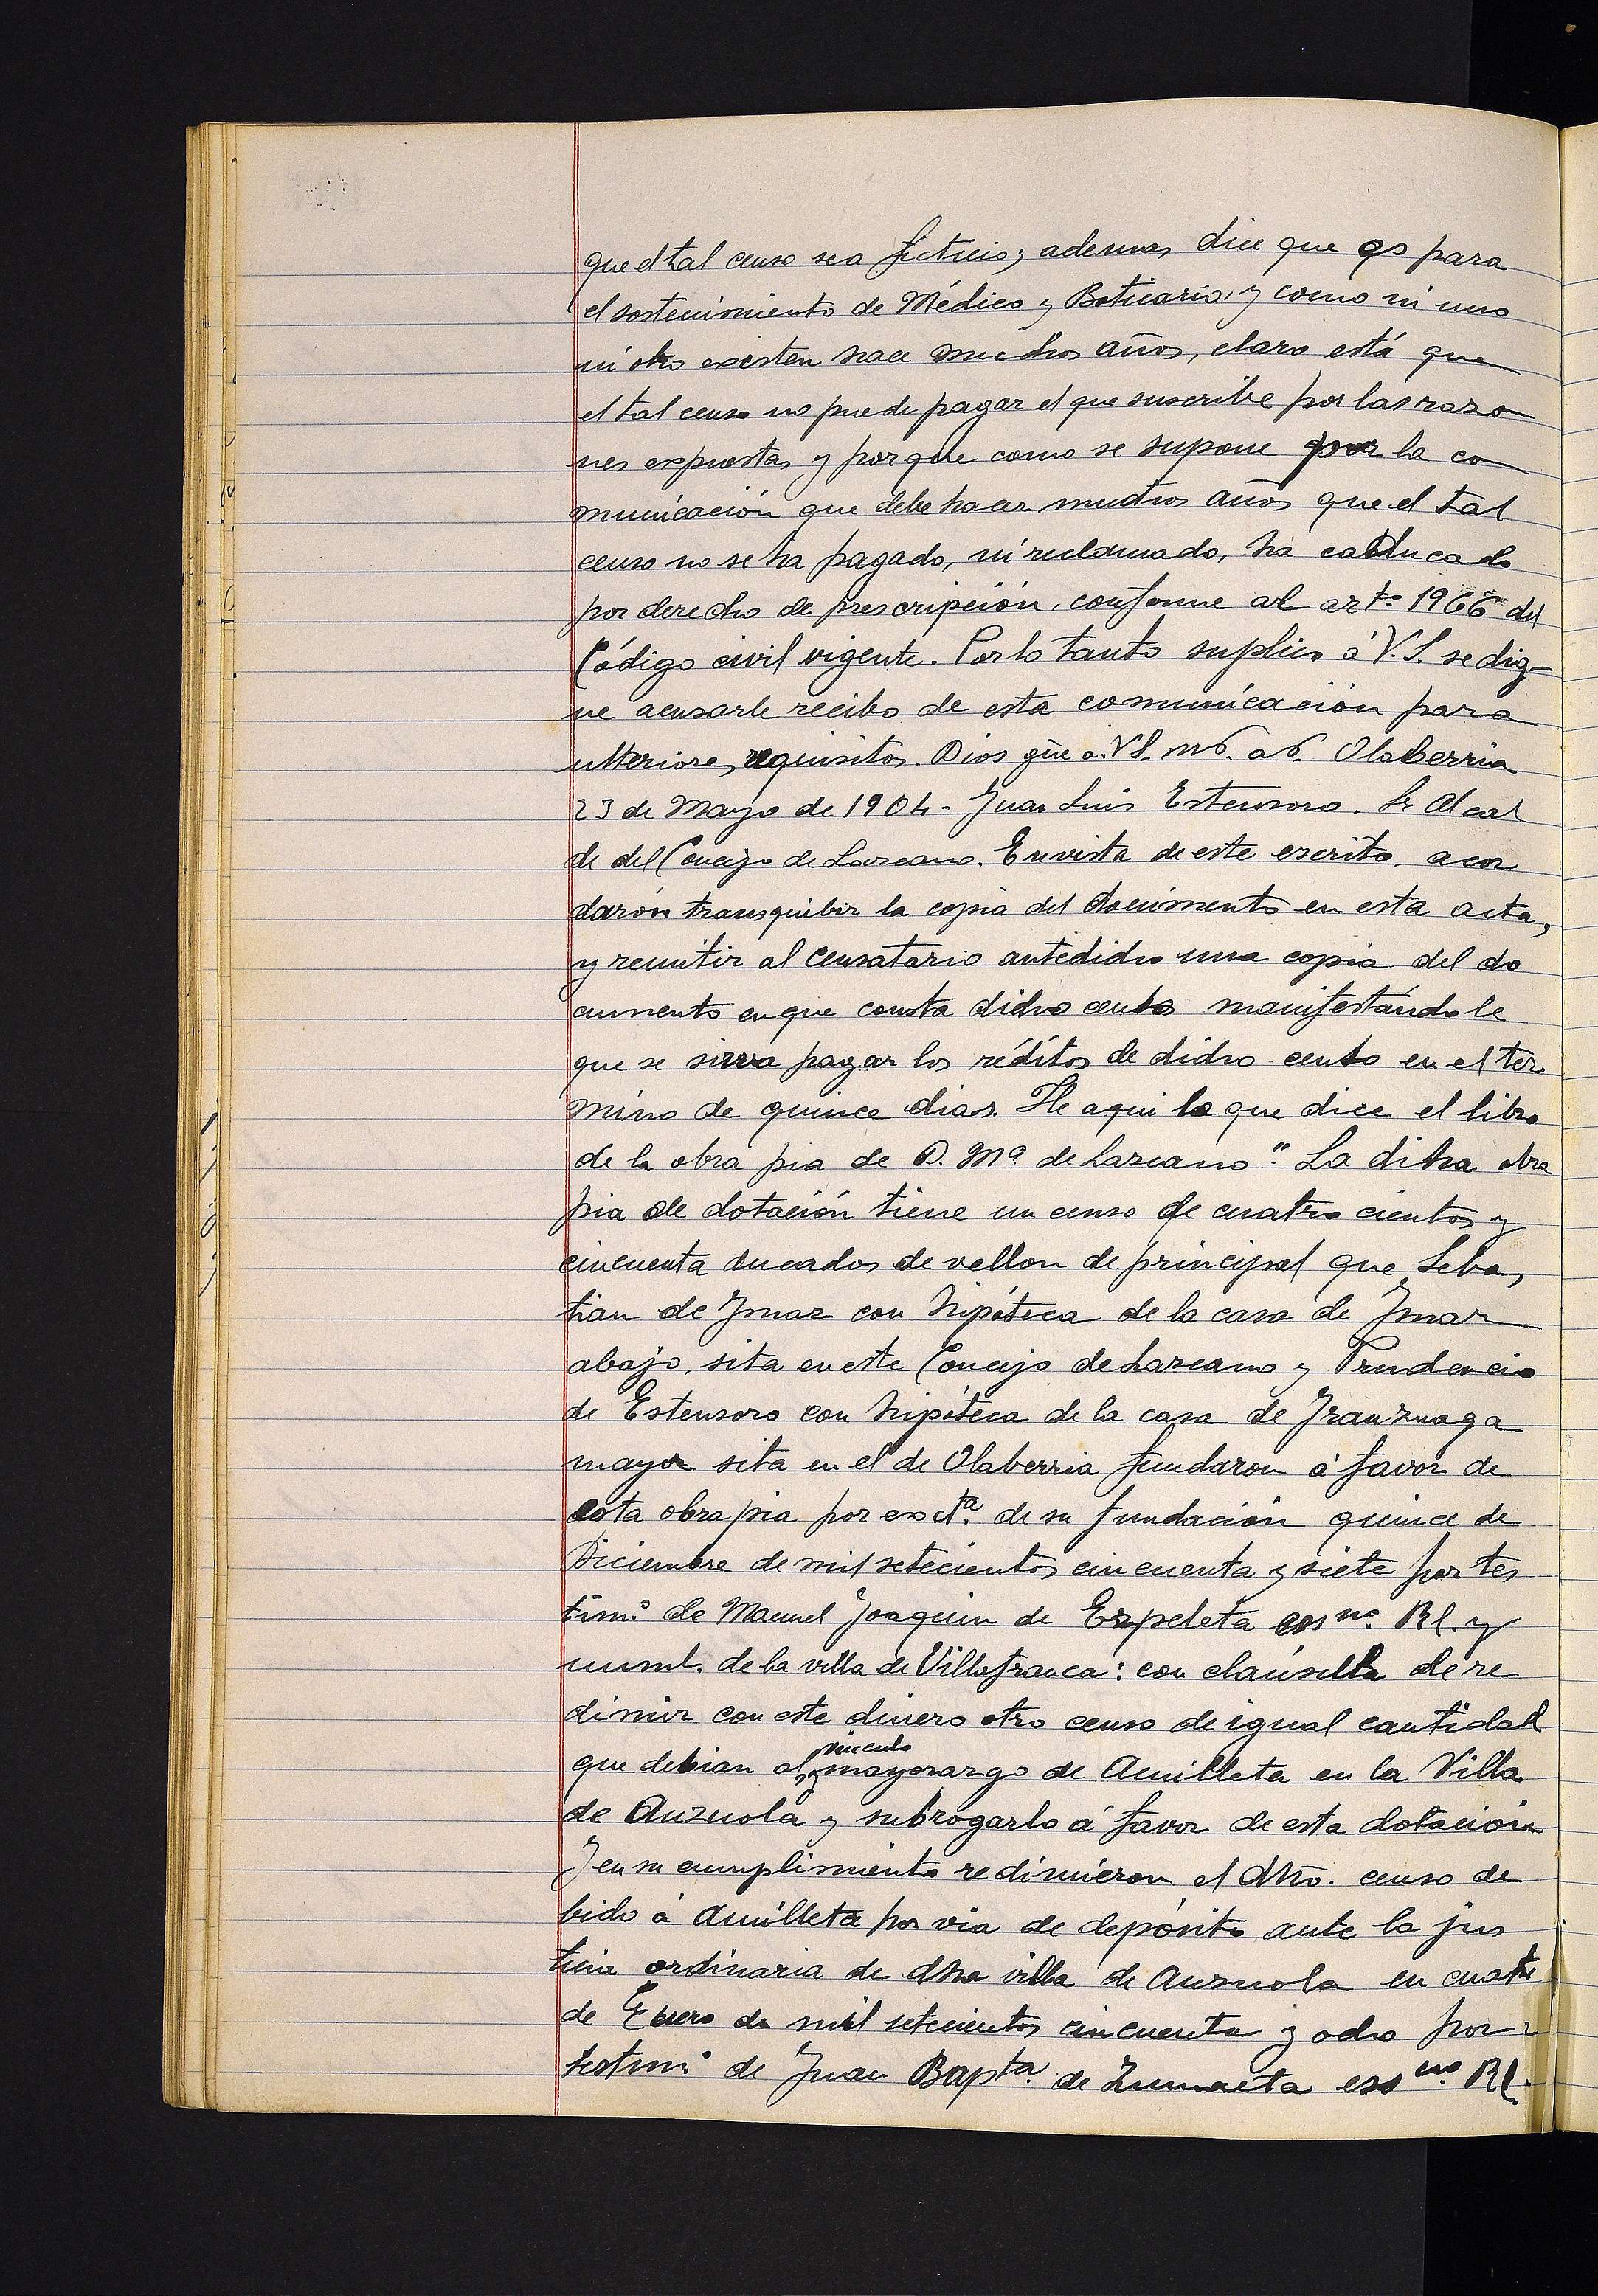 que el tal censo sea ficticio; ademas dice que es para
el sostenimiento de Médico y Boticario, y como ni uno
ni otro existen hace muchos años, claro está que
el tal censo no puede pagar el que suscribe por las razo
nes expuestas y porque como se supone por la co
municación que debe hacer muchos años que el tal
censo no se ha pagado, ni reclamado, ha caducado
por derecho de prescripción, conforme al arto. 1966 del
Código civil vigente. Por lo tanto suplico á V.S. se dig-
ne acusarle recibo de esta comunicación para
ulteriores requisitos. Dios gūe a V.S. ms. as. Olaberria
23 de Mayo de 1904 - Juan Luis Estensoro. Sr Alcal
de del Concejo de Lazcano. En vista de este escrito, acor
darón transquibir la copia del documento en esta acta,
y remitir al censatario antedicho una copia del do
cumento en que consta dicho censo manifestándole
que se sirva pagar los réditos de dicho censo en el ter
mino de quince dias. He aqui lo que dice el libro
de la obra pia de D. Ma. de Lazcano ". La dicha obra
pia de dotación tiene un censo de cuatro cientos y
cincuenta ducados de vellon de principal que Sebas
tian de Ymaz con hipóteca de la casa de Ymaz
abajo, sita en este Concejo de Lazcano y Prudencio
de Estensoro con hipóteca de la casa de Yranzuaga
mayor sita en el de Olaberria fundaron á favor de
esta obra pia por escta. de su fundación quince de
Diciembre de mil setecientos cincuenta y siete por tes
timo. de Manuel Joaquin de Ezpeleta essno. Rl. y
numl. de la villa de Villafranca: con claúsula de re
dimir con este dinero otro censo de igual cantidad
que debian al vinculo y mayorazgo de Amilleta en la Villa
de Anzuola y subrogarlo á favor de esta dotación
Y en su cumplimiento redimieron el dho. censo de
bido á Amilleta por via de depósito ante la jus
ticia ordinaria de dha villa de Anzuola en cuatro
de Enero de mil setecientos cincuenta y ocho por
testimo de Juan Bapta. de Zumaeta essno. Rl.